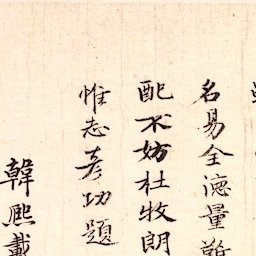 名易全德量難
配不妨杜牧朗
惟志彦功題
韓熙載